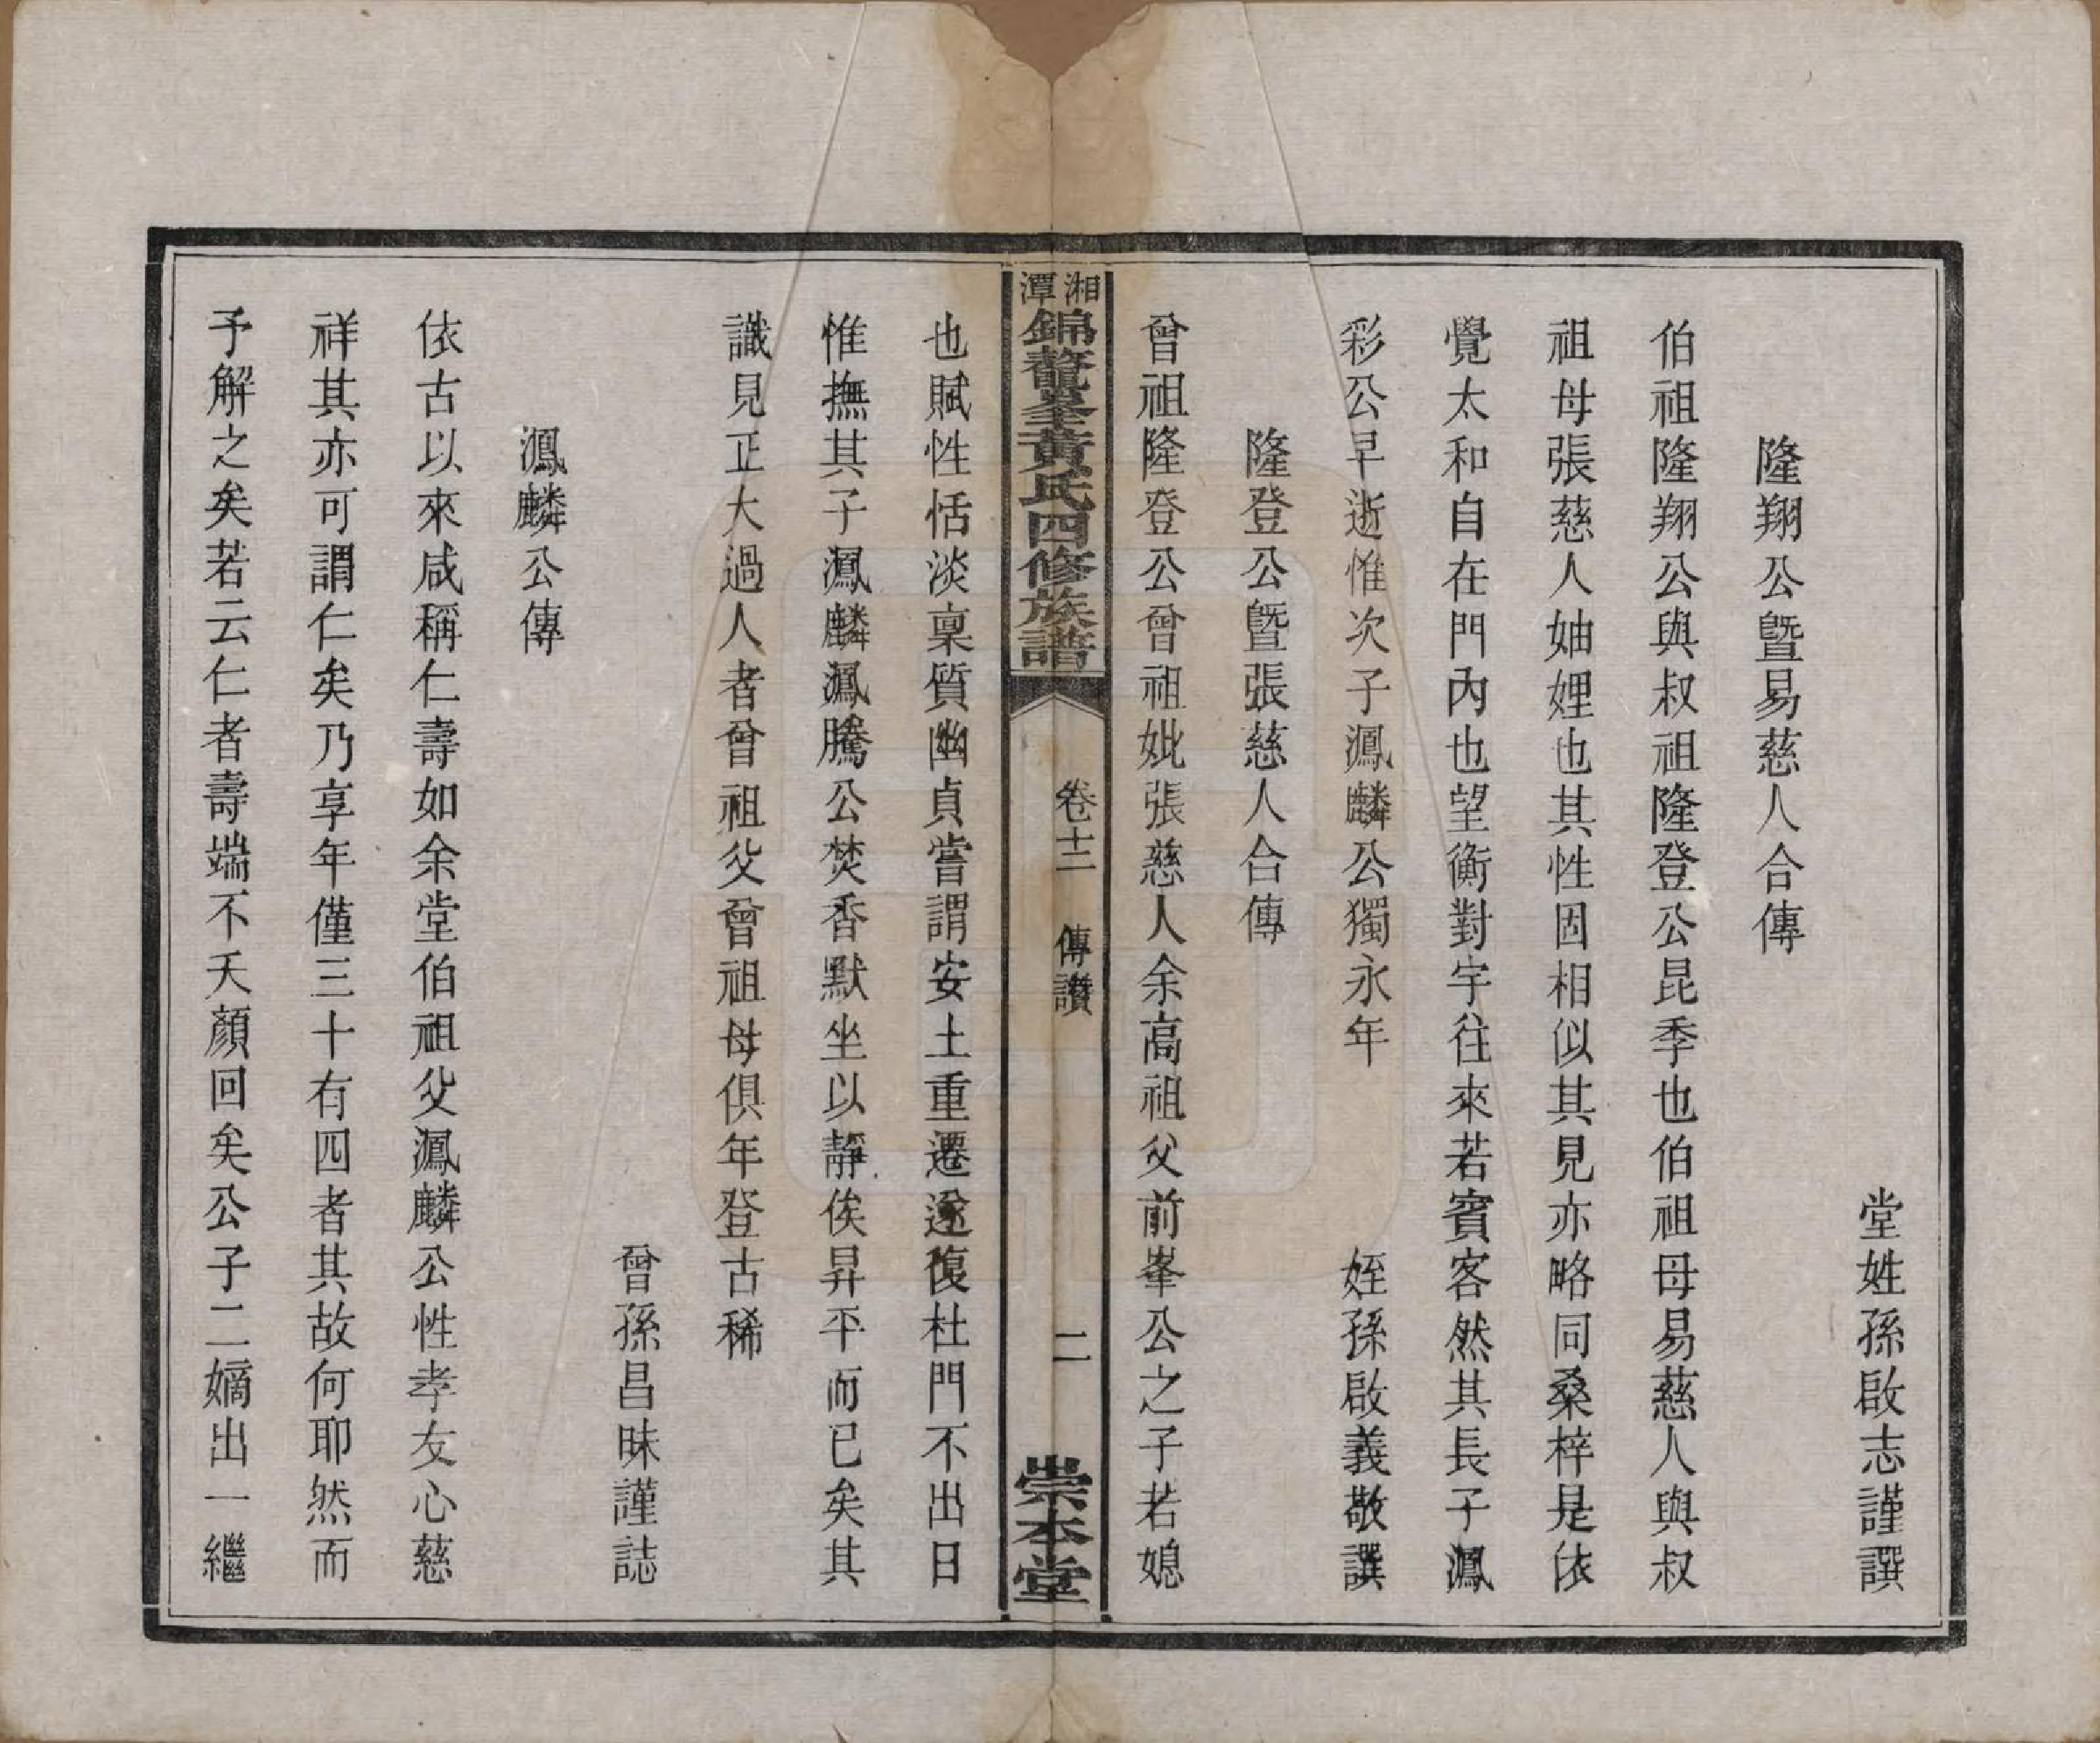 堂姪孫啟志謹譔
隆翔公曁易慈人合傳
伯祖隆翔公與叔祖隆登公昆季也伯祖母易慈人與叔
祖母張慈人妯娌也其性固相似其見亦略同桑梓是依
覺太和自在門內也望衡對宇往來若賓客然其長子鳳
彩公早逝惟次子鳳麟公獨永年 姪孫啟義敬譔
隆登公曁張慈人合傳
曾祖隆登公曾祖妣張慈人余高祖父前峯公之子若媳
湘潭錦鰲黃氏四修族譜 卷十二 傳讚 二 崇本堂
也賦性恬淡稟質幽貞嘗謂安土重遷遂復杜門不出日
惟撫其子鳳麟鳳騰公焚香默坐以靜俟昇平而已矣其
識見正大過人者曾祖父曾祖母俱年登古稀
曾孫昌昧謹誌
鳳麟公傳
依古以來咸稱仁壽如余堂伯祖父鳳麟公性孝友心慈
祥其亦可謂仁矣乃享年僅三十有四者其故何耶然而
予解之矣若云仁者壽端不夭顏回矣公子二嫡出一繼